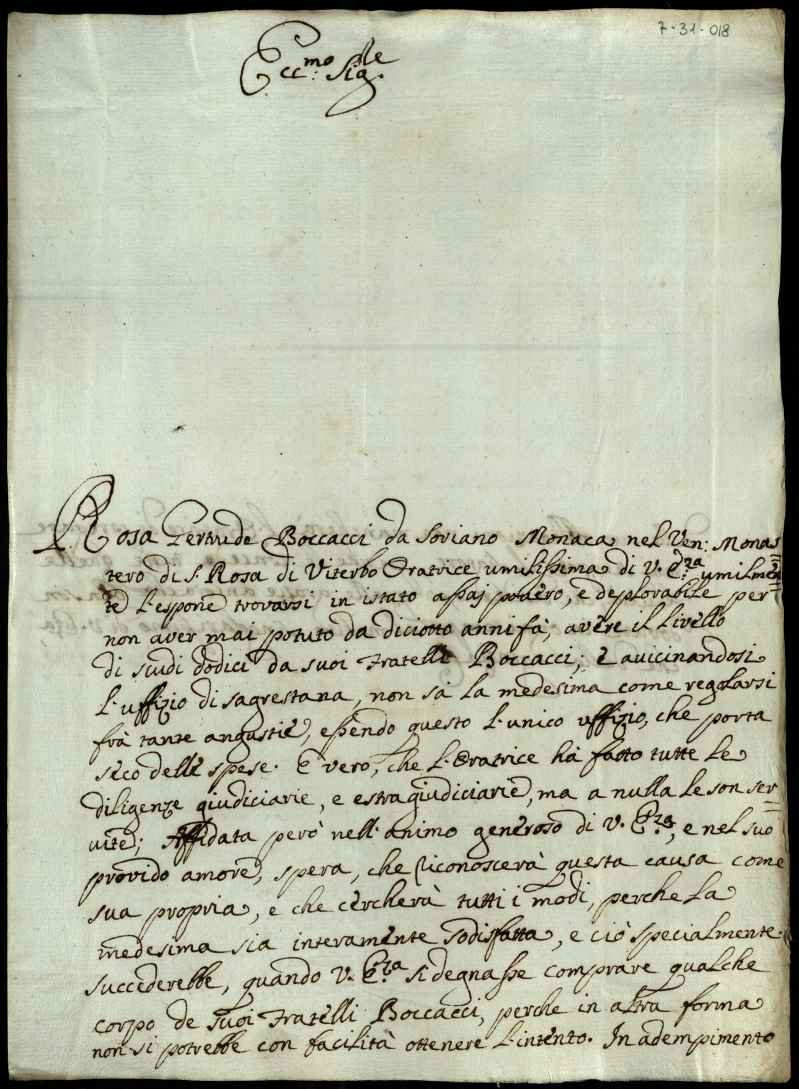 7-31-018
Ecc.mo Sig.le
Rosa Gertrude Boccacci da Soriano Monaca nel Ven: Monas=
tero di S. Rosa di Viterbo Oratrice umilissima di V. E.za umilmen=
te l'espone trovarsi in istato assaj povero, e deplorabile per
non aver mai potuto da diciotto anni fà, avere il livello
di scudi dodici da suoi Fratelli Boccacci; E avicinandosi
l'uffizio di sagrestana, non sà la medesima come regolarsi
frà tante angustie, essendo questo l'unico uffizio, che porta
seco delle spese. E vero, che l'Oratrice hà fatto tutte le
diligenze giudiciarie, e estragiudiciarie, ma a nulla le son ser=
vite; Affidata però nell'animo generoso di V. E.za, e nel suo
provido amore, spera, che riconoscerà questa causa come
sua propria, e che cercherà tutti i modi, perche la
medesima sia interamente sodisfatta, e ciò specialmente
succederebbe, quando V. E.za si degnasse comprare qualche
corpo de suoi Fratelli Boccacci, perche in altra forma
non si potrebbe con facilità ottenere l'intento. In adempimento